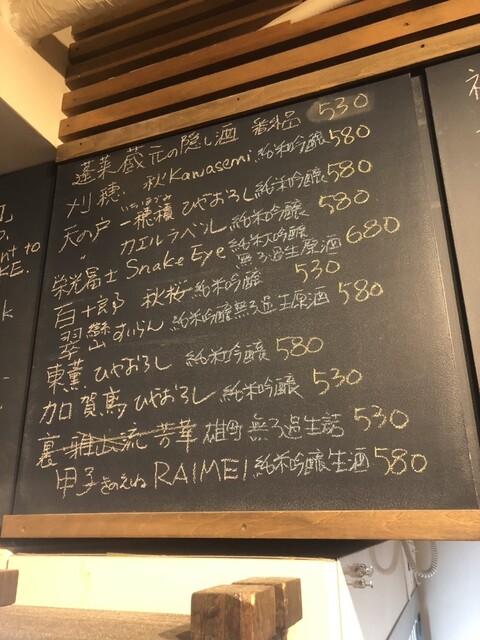 蓬莱 蔵元の隠し酒 番外品 530
刈穂 秋Kawasemi 純米吟醸 580
いちほづみ
天の戸 一穂積 ひやおろし 純米吟醸 580
〃 カエルラベル 純米吟醸 580
栄光冨士 Snake Eye 純米大吟醸 無ろ過生原酒 680
百十郎 秋桜 純米吟醸 530
翠巒 すいらん 純米吟醸 無ろ過生原酒 580
東薫 ひやおろし 純米吟醸 580
加賀鳶 ひやおろし 純米吟醸 530
裏 雅山流 芳華 雄町 無ろ過生詰 530
甲子 きのえね RAIMEI 純米吟醸生酒 580
nt to
KE.
k